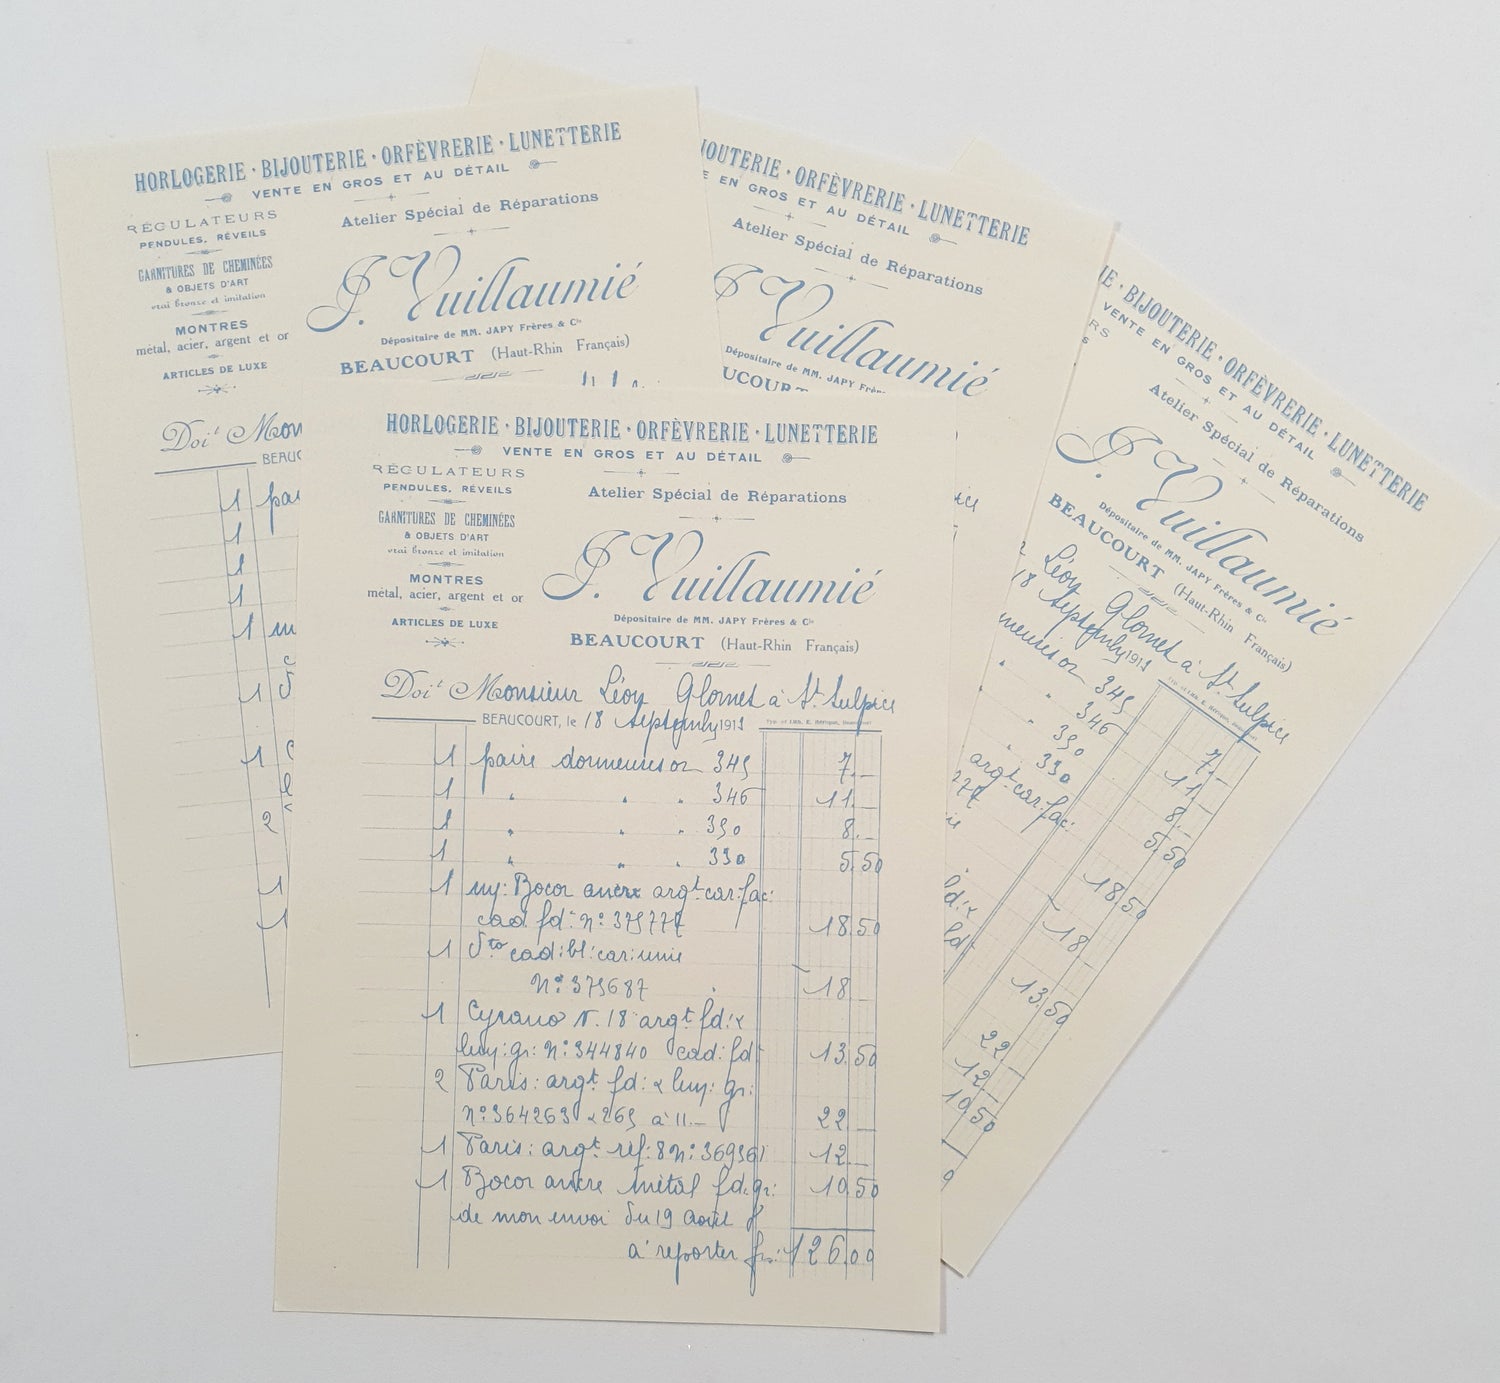 HORLOGERIE · BIJOUTERIE · ORFÈVRERIE · LUNETTERIE
VENTE EN GROS ET AU DÉTAIL
RÉGULATEURS
PENDULES, RÉVEILS
GARNITURES DE CHEMINÉES
& OBJETS D'ART
vrai bronze et imitation
MONTRES
métal, acier, argent et or
ARTICLES DE LUXE
Atelier Spécial de Réparations
J. Vuillaumié
Dépositaire de MM. JAPY Frères & Cie
BEAUCOURT (Haut-Rhin Français)
Doit Mon
BEAUC
1 pai
1
1
1
1
1
1
2
1
1
JOUTERIE · ORFÈVRERIE · LUNETTERIE
E EN GROS ET AU DÉTAIL
Atelier Spécial de Réparations
J. Vuillaumié
Dépositaire de MM. JAPY Frèr
UCOUR
IE · BIJOUTERIE · ORFÈVRERIE · LUNETTERIE
VENTE EN GROS ET AU DÉTAIL
RS
S
Atelier Spécial de Réparations
J. Vuillaumié
Dépositaire de MM. JAPY Frères & Cie
BEAUCOURT (Haut-Rhin Français)
Léon Glomet à St Sulpice
18 1911
meuses or 345 7.—
" " 346 11
" 350 8.—
" 330 5.50
argt car: fac:
777 18.50
18
fd: &
fd: 13.50
22
12
10.50
HORLOGERIE · BIJOUTERIE · ORFÈVRERIE · LUNETTERIE
VENTE EN GROS ET AU DÉTAIL
RÉGULATEURS
PENDULES, RÉVEILS
GARNITURES DE CHEMINÉES
& OBJETS D'ART
vrai bronze et imitation
MONTRES
métal, acier, argent et or
ARTICLES DE LUXE
Atelier Spécial de Réparations
J. Vuillaumié
Dépositaire de MM. JAPY Frères & Cie
BEAUCOURT (Haut-Rhin Français)
Doit Monsieur Léon Glomet à St Sulpice
BEAUCOURT, le 18 1911
1 paire dormeuses or 345 7.—
1 " " " 346 11.—
1 " " " 350 8.—
1 " " " 330 5.50
1 Bocor ancre argt car: fac:
cad fd: No: 375777 18.50
1 dto cad: bl: car: unie
No: 375687 18 —
1 Cyrano N. 18 argt fd: &
luy: gr: No: 344840 cad: fd: 13.50
2 Paris: argt fd: & luy: gr:
No: 364263 & 265 à 11.— 22 —
1 Paris: argt réf: 8 No: 369361 12 —
1 Bocor ancre métal fd: gr: 10.50
de mon envoi du 19 août
à reporter frs: 126.00